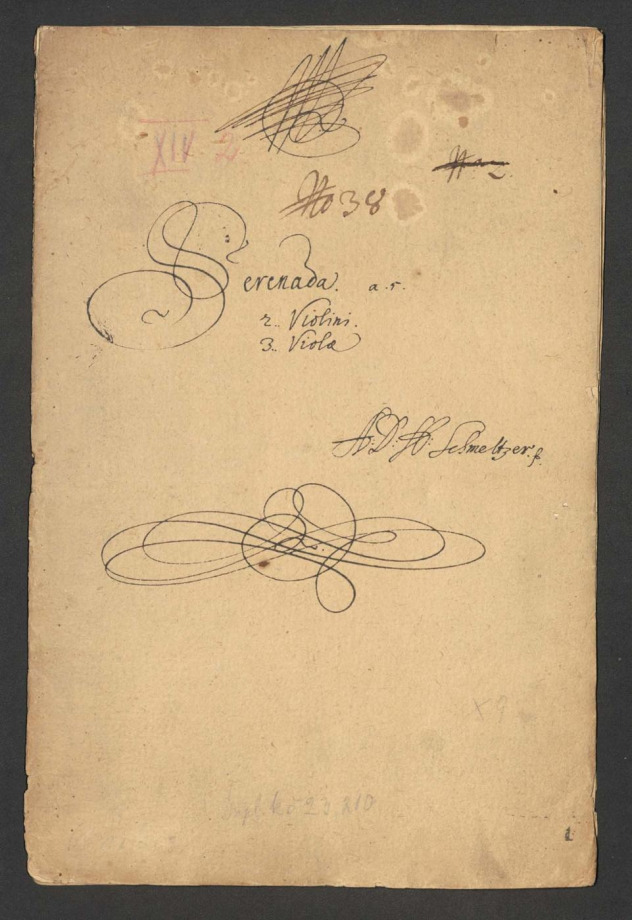 XIV 2
No 38
Serenada. a. 5.
2. Violini.
3. Violæ
A: D: H: Schmeltzer.
1